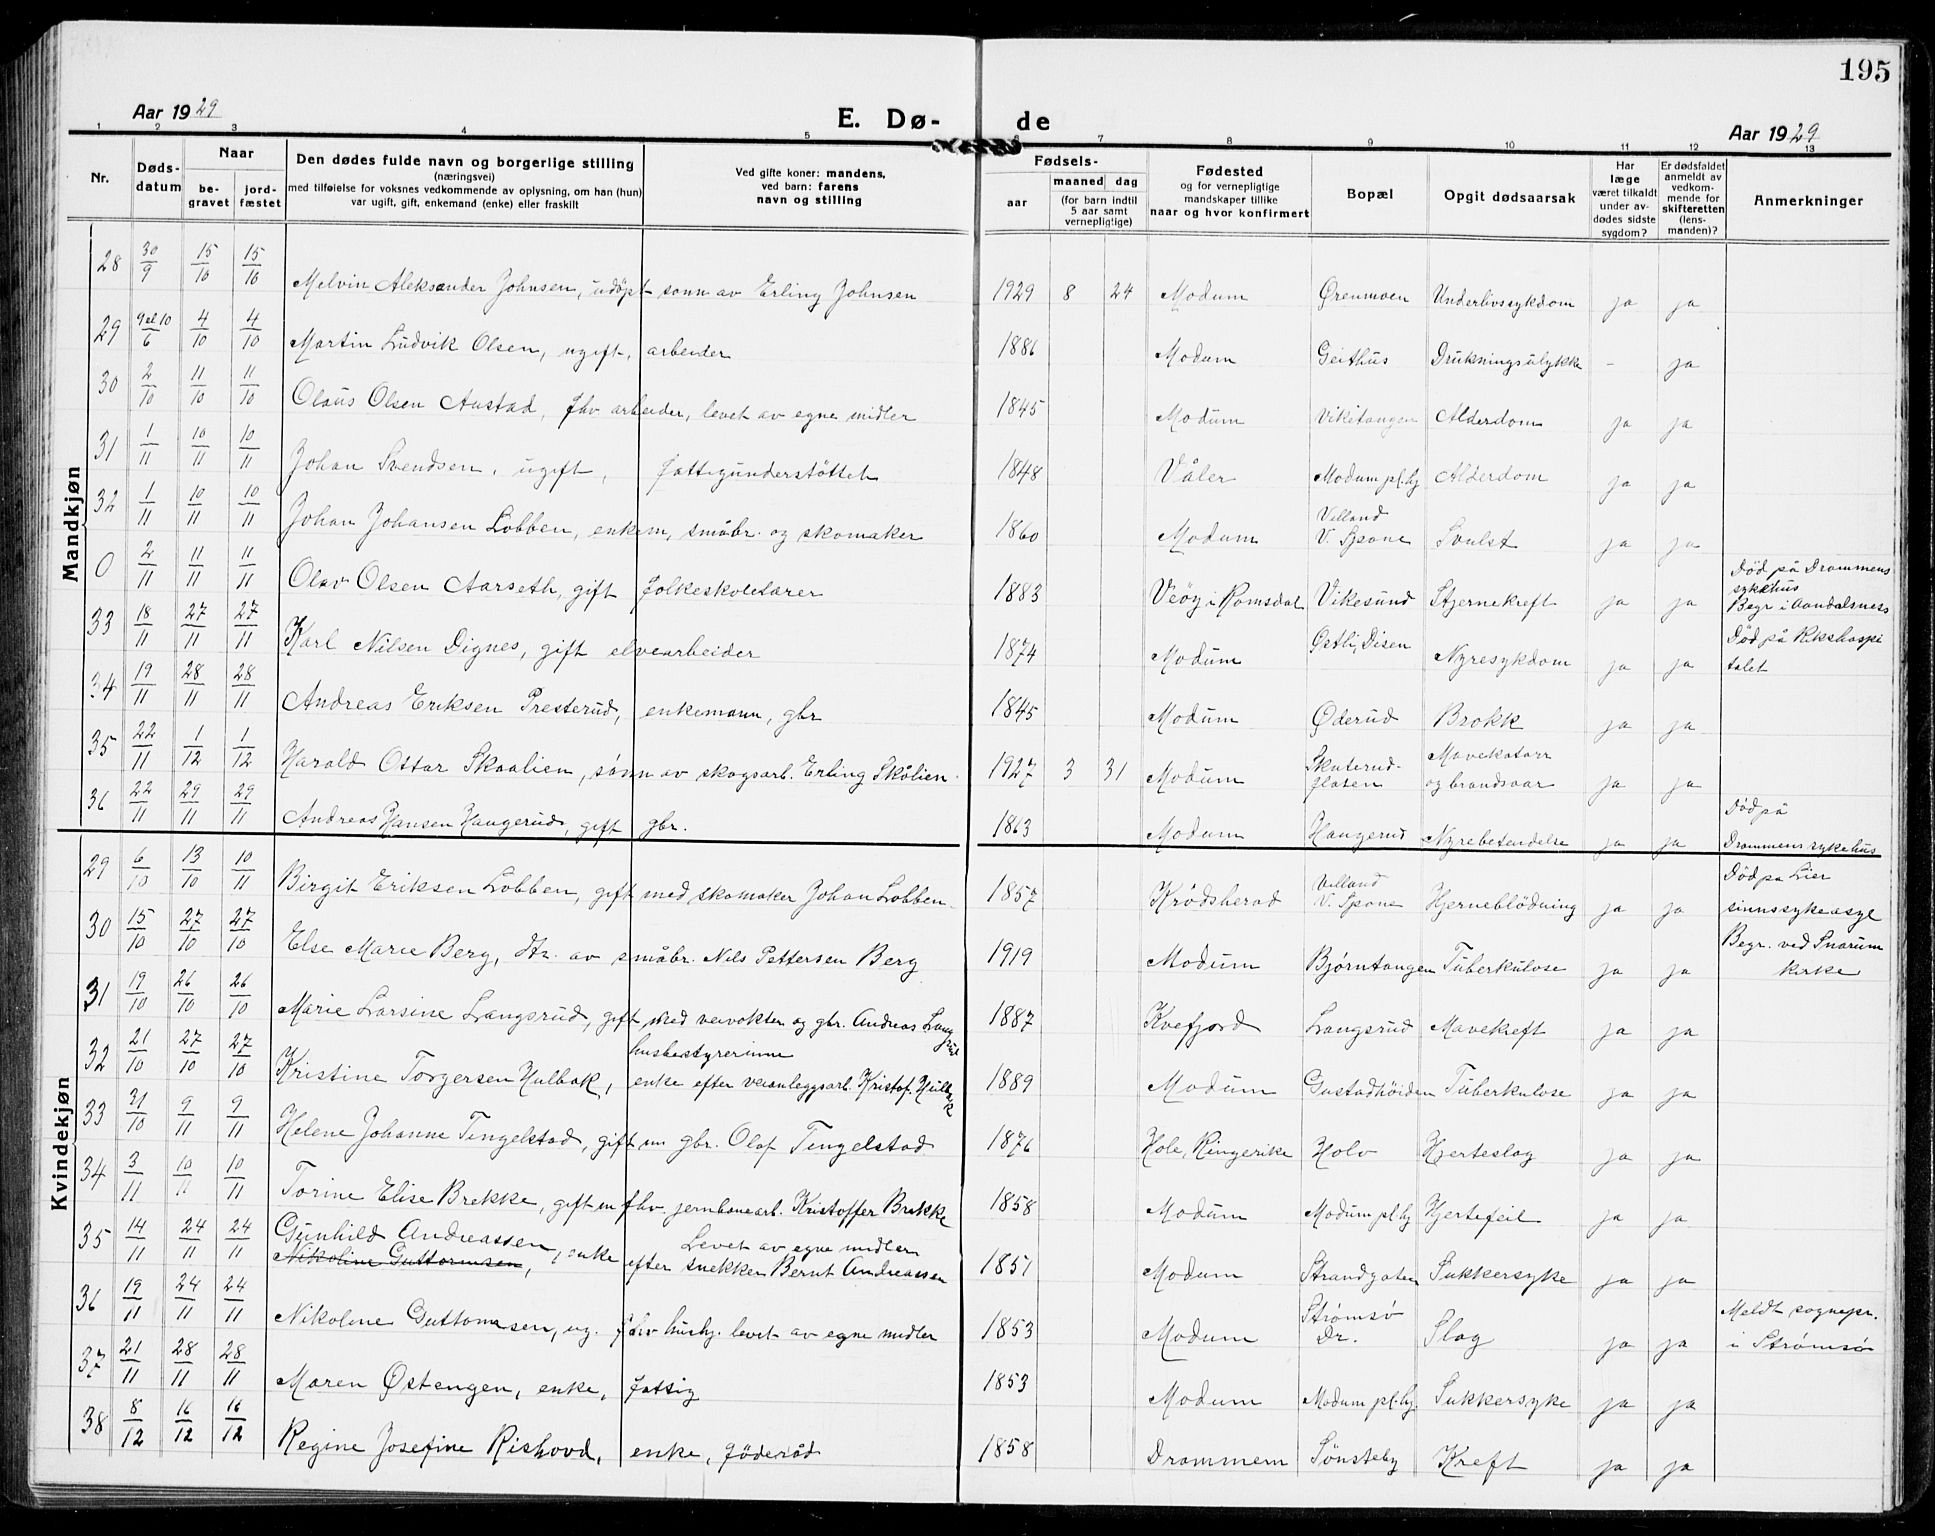 195
Aar 1929
E. Dø-
de
Aar 1929
1 2 3 4 5 6 7 8 9 10 11 12 13
Nr.
Døds-
datum
Naar
be-
gravet
jord-
fæstet
Den dødes fulde navn og borgerlige stilling
(næringsvei)
med tilføielse for voksnes vedkommende av oplysning, om han (hun)
var ugift, gift, enkemand (enke) eller fraskilt
Ved gifte koner: mandens,
ved barn: farens
navn og stilling
Fødsels-
aar
maaned dag
(for barn indtil
5 aar samt
vernepligtige)
Fødested
og for vernepligtige
mandskaper tillike
naar og hvor konfirmert
Bopæl
Opgit dødsaarsak
Har
læge
været tilkaldt
under av-
dødes sidste
sygdom?
Er dødsfaldet
anmeldt av
vedkom-
mende for
skifteretten
(lens-
manden)?
Anmerkninger
Mandkjøn
28 30/9 15/10 15/10 Melvin Aleksander Johnsen, udöpt sønn av Erling Johnsen 1929 8 24 Modum Ørenmoen Underlivssykdom ja ja
29 9 el 10/6 4/10 4/10 Martin Ludvik Olsen, ugift, arbeider 1886 Modum Geithus Drukningsulykke - ja
30 2/10 11/10 11/10 Olaus Olsen Austad, fhv arbeider, levet av egne midler 1845 Modum Viketangen Alderdom ja ja
31 1/11 10/11 10/11 Johan Svendsen, ugift, fattigunderstöttet 1848 Våler Modum pl.hj Alderdom ja ja
32 1/11 10/11 10/11 Johan Johansen Lobben, enkem, småbr. og skomaker 1860 Modum Velland
V. Spone Svulst ja ja
0 2/11 11/11 11/11 Olav Olsen Aarseth, gift folkeskolelærer 1883 Veöy i Romsdal Vikesund Stjernekreft ja ja Död på Drammens
sykehus
Begr i Aandalsness
33 18/11 27/11 27/11 Karl Nilsen Dignes, gift elvearbeider 1874 Modum Østli, Disen Nyresykdom ja ja Död på Rikshospi
talet
34 19/11 28/11 28/11 Andreas Eriksen Presterud, enkemann, gbr 1845 Modum Øderud Brokk ja ja
35 22/11 1/12 1/12 Harald Ottar Skaalien, sønn av skogsarb. Erling Skålien. 1927 3 31 Modum Skuterud-
flaten Mavekatarr
og brandsaar ja ja
36 22/11 29/11 29/11 Andreas Hansen Haugerud, gift gbr. 1863 Modum Haugerud Nyrebetendelse ja ja Död på
Drammens sykehus
Kvindekjøn
29 6/10 13/10 10/11 Birgit Eriksen Lobben, gift med skomaker Johan Lobben. 1857 Krødsherad Velland
V. Spone Hjerneblödning ja ja Död pa Lier
sinnssykeasyl
30 15/10 27/10 27/10 Else Marie Berg, dtr. av småbr. Nils Pettersen Berg 1919 Modum Bjørntangen Tuberkulose ja ja Begr. ved Snarum
kirke
31 19/10 26/10 26/10 Marie Larsine Langsrud, gift med veivokter og gbr. Andreas Langsrud 1887 Kvefjord Langsrud Mavekreft ja ja
32 21/10 27/10 27/10 husbestyrerinne
Kristine Torgersen Hulbak, enke efter veianleggsarb. Kristof. Hulbak 1889 Modum Gustadhöiden Tuberkulose ja ja
33 31/10 9/11 9/11 Helene Johanne Tingelstad, gift m gbr. Olaf Tingelstad 1876 Hole, Ringerike Holv Hjerteslag ja ja
34 3/11 10/11 10/11 Torine Elise Brekke, gift m fhv. jernbanearb. Kristoffer Brekke 1858 Modum Modum pl.hj Hjertefeil ja ja
35 14/11 24/11 24/11 Gunhild Andreassen Levet av egne midler
Nikoline Guttormsen, enke efter snekker Bernt Andreassen 1851 Modum Strandgaten Sukkersyke ja ja
36 19/11 24/11 24/11 Nikoline Guttormsen, ug. fhv hushj. levet av egne midler 1853 Modum Strømsø
Dr. Slag ja ja Meldt sognepr.
i Strømsø
37 21/11 28/11 28/11 Maren Østengen, enke, fattig 1853 Modum Modum pl.hj. Sukkersyke ja ja
38 8/12 16/12 16/12 Regine Josefine Rishovd, enke, föderåd 1858 Drammen Sønsteby Kreft ja ja